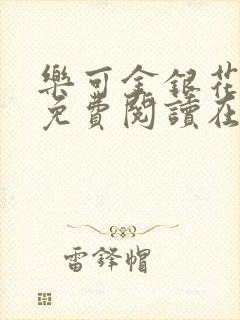 樂可金銀花
免費閱讀在
雷鋒帽